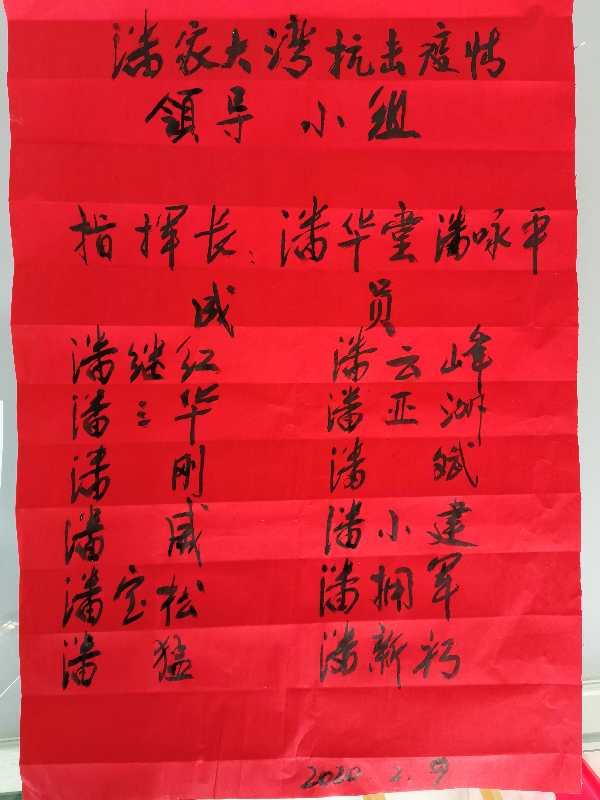 潘家大湾抗击疫情
領导小组
指挥长：潘华堂潘咏平
成员
潘继红 潘云峰
潘三华 潘亚洲
潘刚 潘斌
潘威 潘小建
潘宝松 潘拥军
潘猛 潘新
2020.2.9